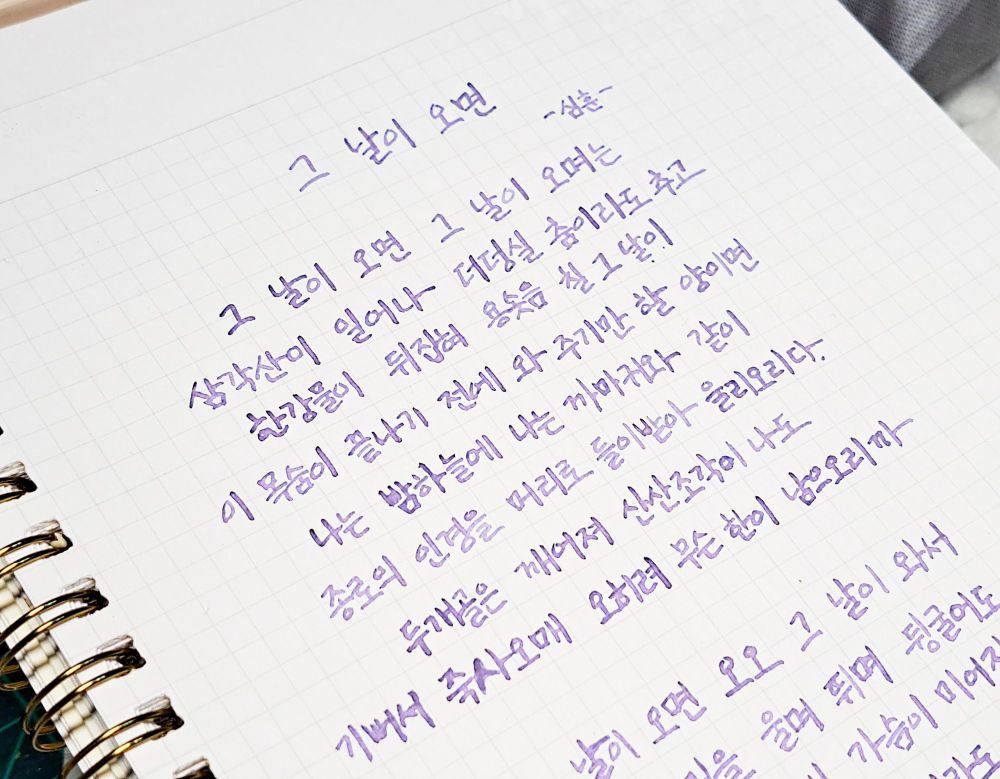 그 날이 오면
-심훈-
그 날이 오면 그 날이 오며는
삼각산이 일어나 더덩실 춤이라도 추고
한강물이 뒤집혀 용솟음 칠 그 날이
이 목숨이 끝나기 전에 와 주기만 할 양이면
나는 밤하늘에 나는 까마귀와 같이
종로의 인경을 머리로 들이받아 울리오리다.
두개골은 깨어져 산산조각이 나도
기뻐서 죽사오매 오히려 무슨 한이 남으오리까
날이 오면 오오 그 날이 와서
울며 뛰며 뒹굴어도
가슴이